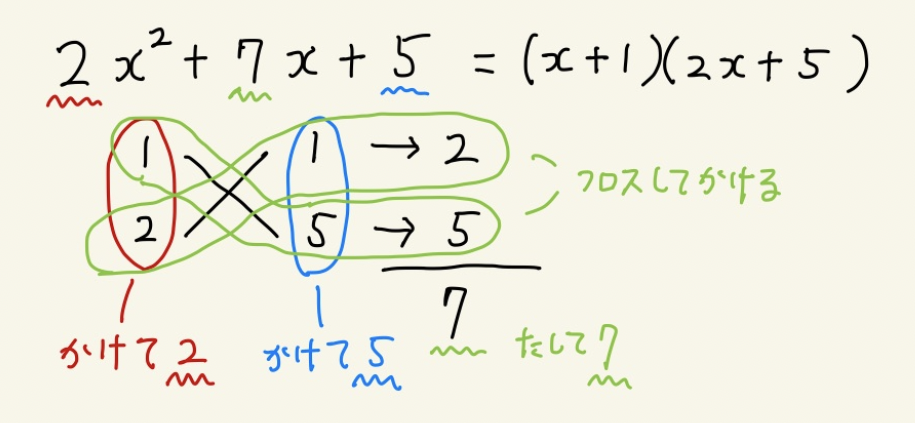 2x²+7x+5=(x+1)(2x+5)
1 1 → 2
クロスしてかける
2 5 → 5
7
かけて2 かけて5 たして7